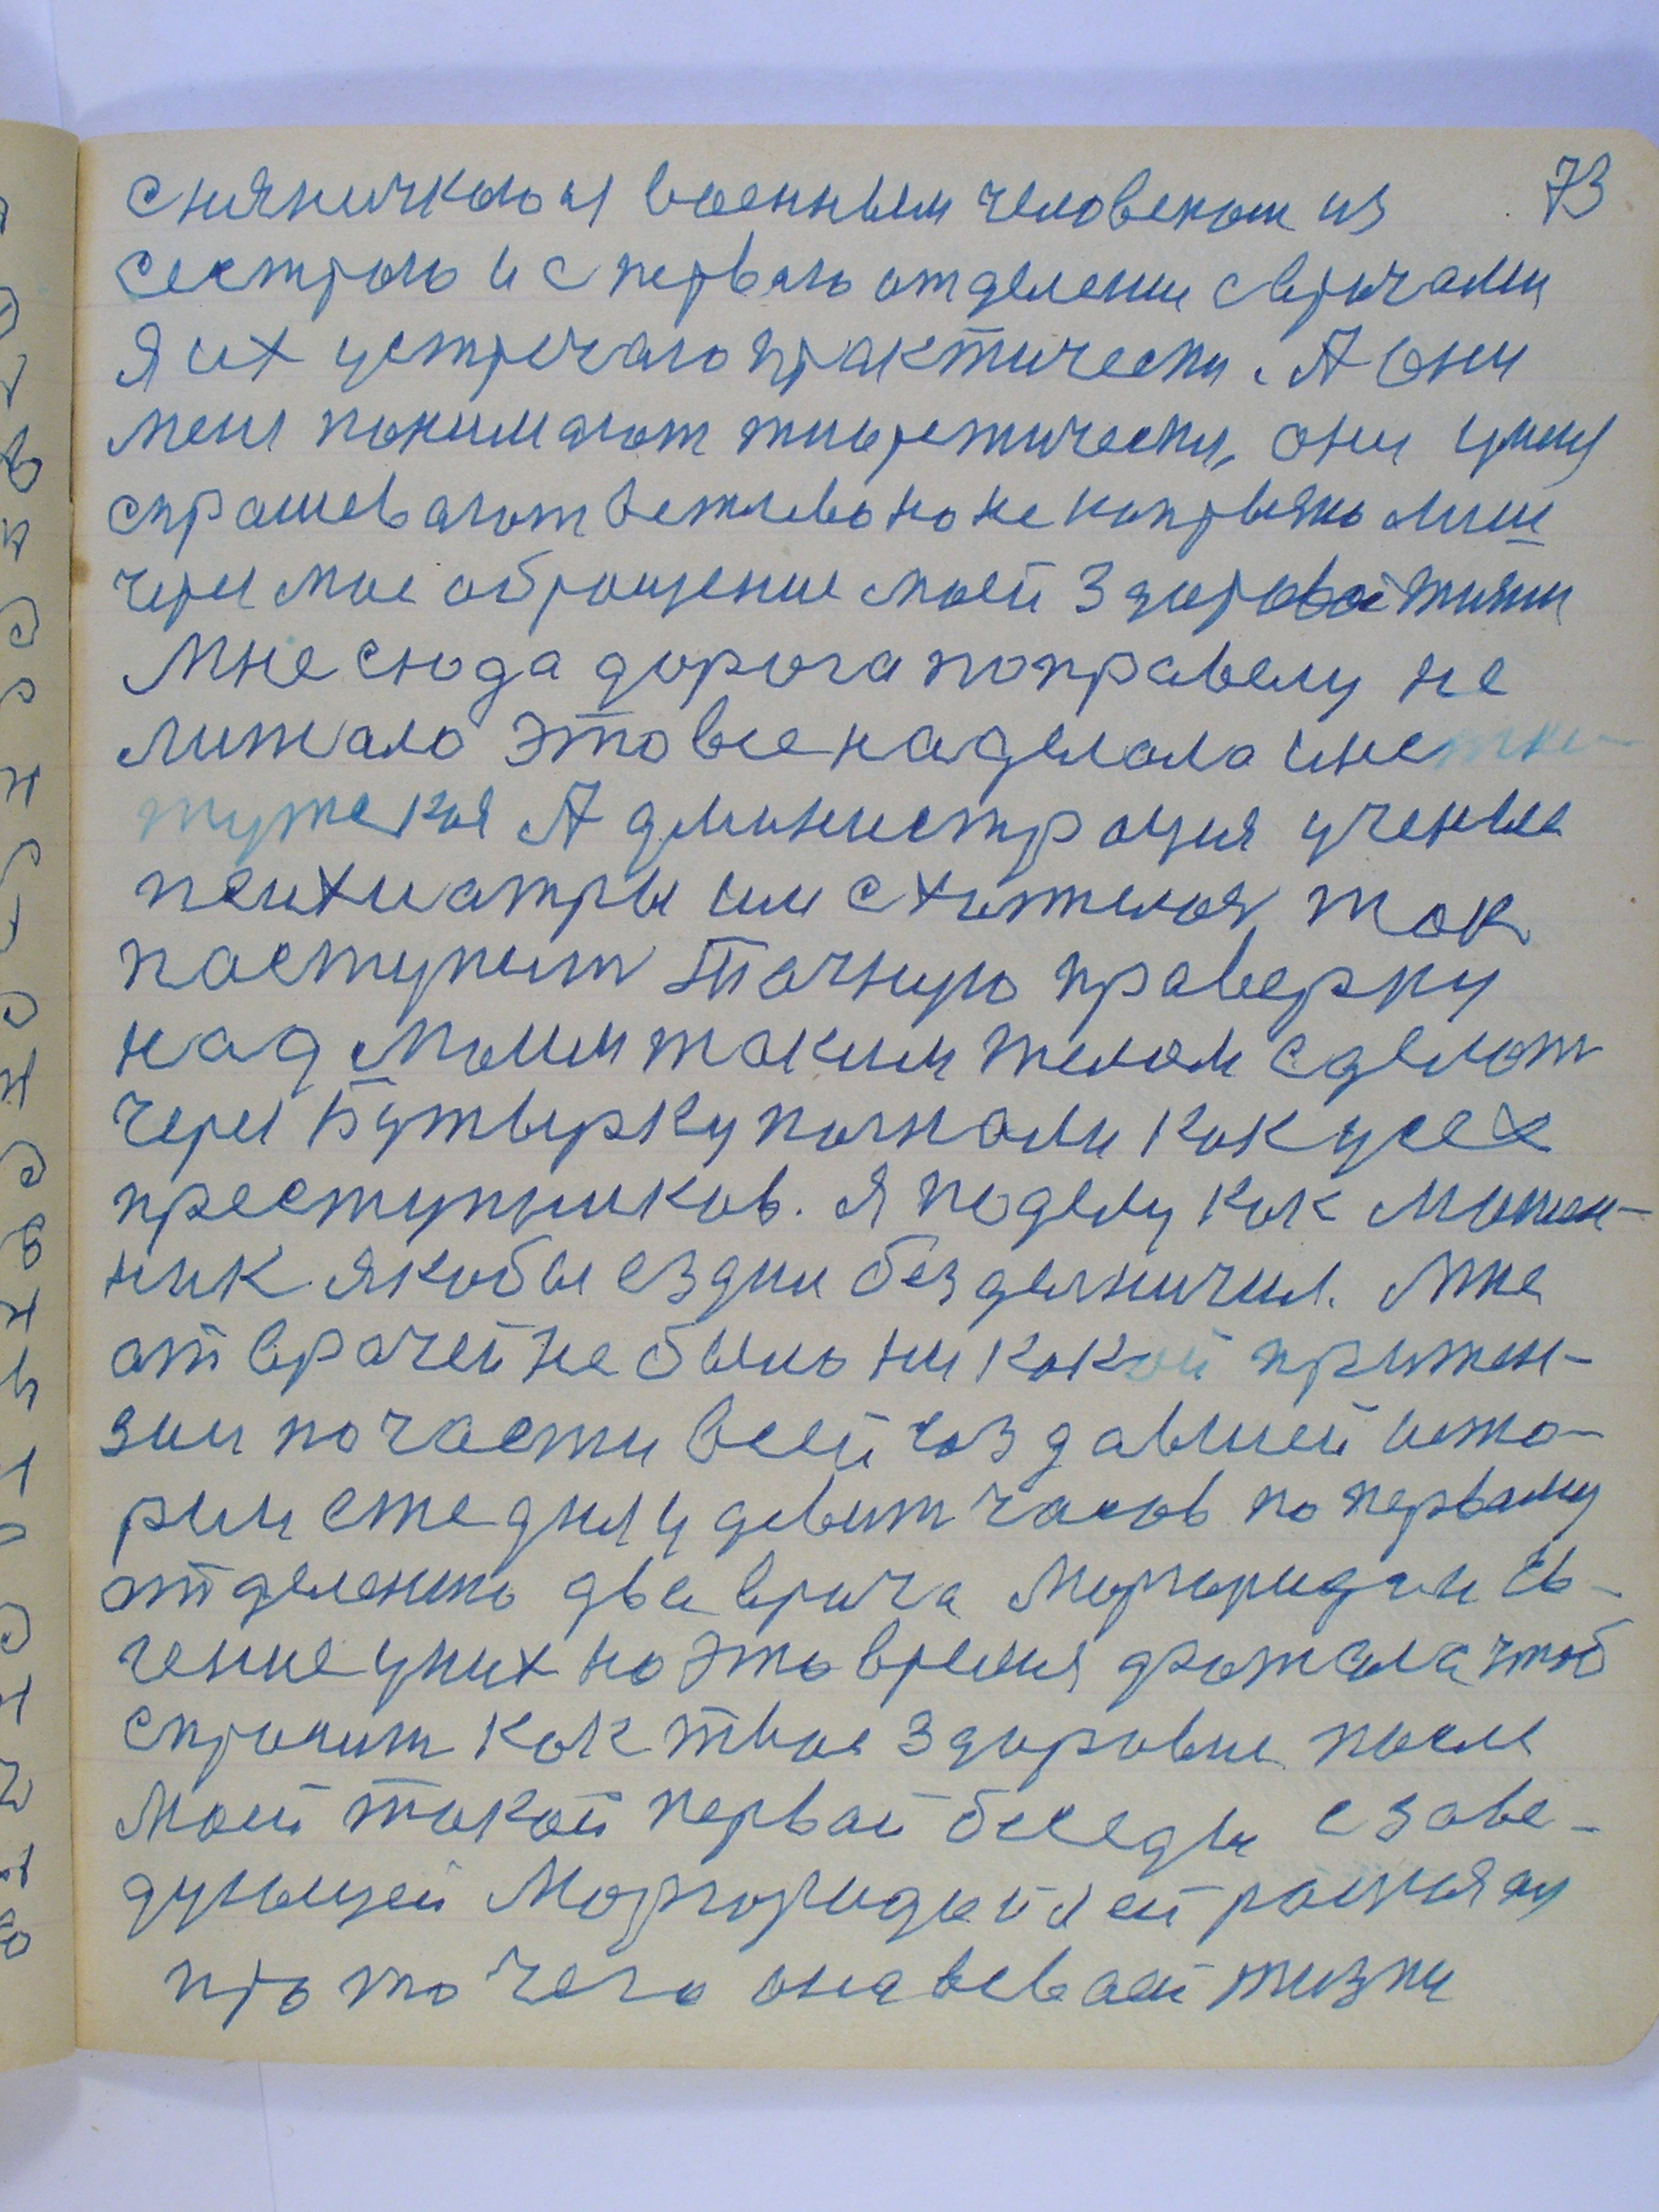 73
с няничкою и военным человеком из
сестрою и с первого отделении с врачами
Я их устречаю практически. А они
меня понимают тиоретически, они умия
спрашевают вежлево но не напрямо лиш
через мое обращение моей здоровой жизни
Мне сюда дорога поправелу не
лижало это все наделала инсти-
тутская Администрация ученые
психиатры им схотелоя так
поступит Точную праверку
над моим таким телом сделат
через Бутырку погнали как усех
преступников. Я поделу как мошен-
ник якобы ездии безделничил. Мне
от врачей не было ни какой притен-
зии по части всей создавшей исто-
рии сже дня и девит часов по первому
отделению два врача Моргорида и
чение у них на это время дражала чтоб
спросит как твое здоровие после
моей такой первай беседы с заве-
дующей Моргоридай я ей
про то чего она всваей жизни